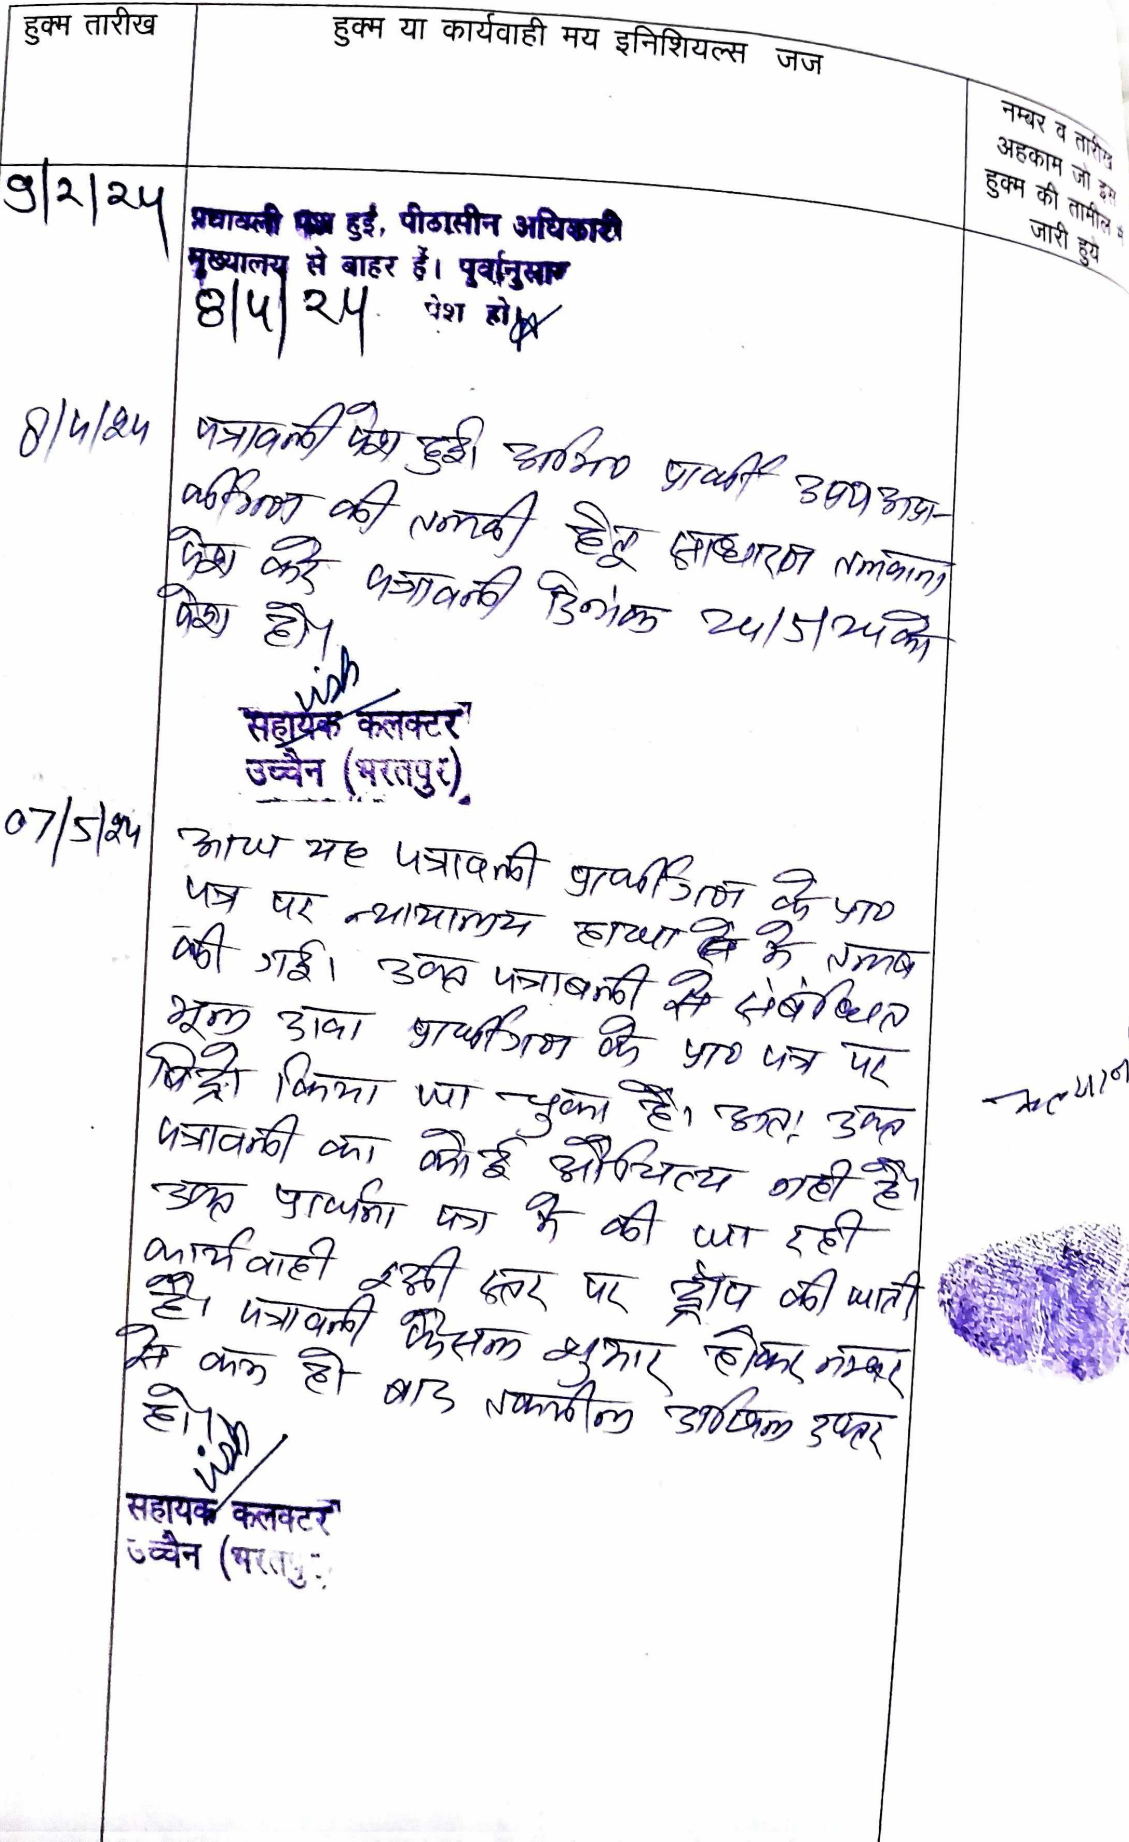 हुक्म तारीख
हुक्म या कार्यवाही मय इनिशियल्स जज
नम्बर व तारीख
अहकाम जो इस
हुक्म की तामील में
जारी हुये
9/2/24
पत्रावली पेश हुई, पीठासीन अधिकारी
मुख्यालय से बाहर हैं। पूर्वानुसार
8/4/24 पेश हो।
8/4/24
पत्रावली पेश हुई। अभि० प्रार्थी
की तलबी हेतु साधारण तलवाना
पेश करे पत्रावली दिनांक 24/5/24 को
पेश हो।
सहायक कलक्टर
उच्चैन (भरतपुर)
07/5/24
आज यह पत्रावली प्रार्थीगण के प्रा०
पत्र पर न्यायालय हाजा में तलब
की गई। उक्त पत्रावली से संबंधित
मूल दावा प्रार्थीगण के प्रा० पत्र पर
विड्रो किया जा चुका है। अतः उक्त
पत्रावली का कोई औचित्य नही है।
उक्त प्रार्थना पत्र में की जा रही
कार्यवाही इसी स्तर पर ड्रोप की जाती
है। पत्रावली फैसल शुमार होकर नम्बर
से कम हो बाद तकमील दाखिल दफ्तर
हो।
सहायक कलक्टर
उच्चैन (भरतपुर